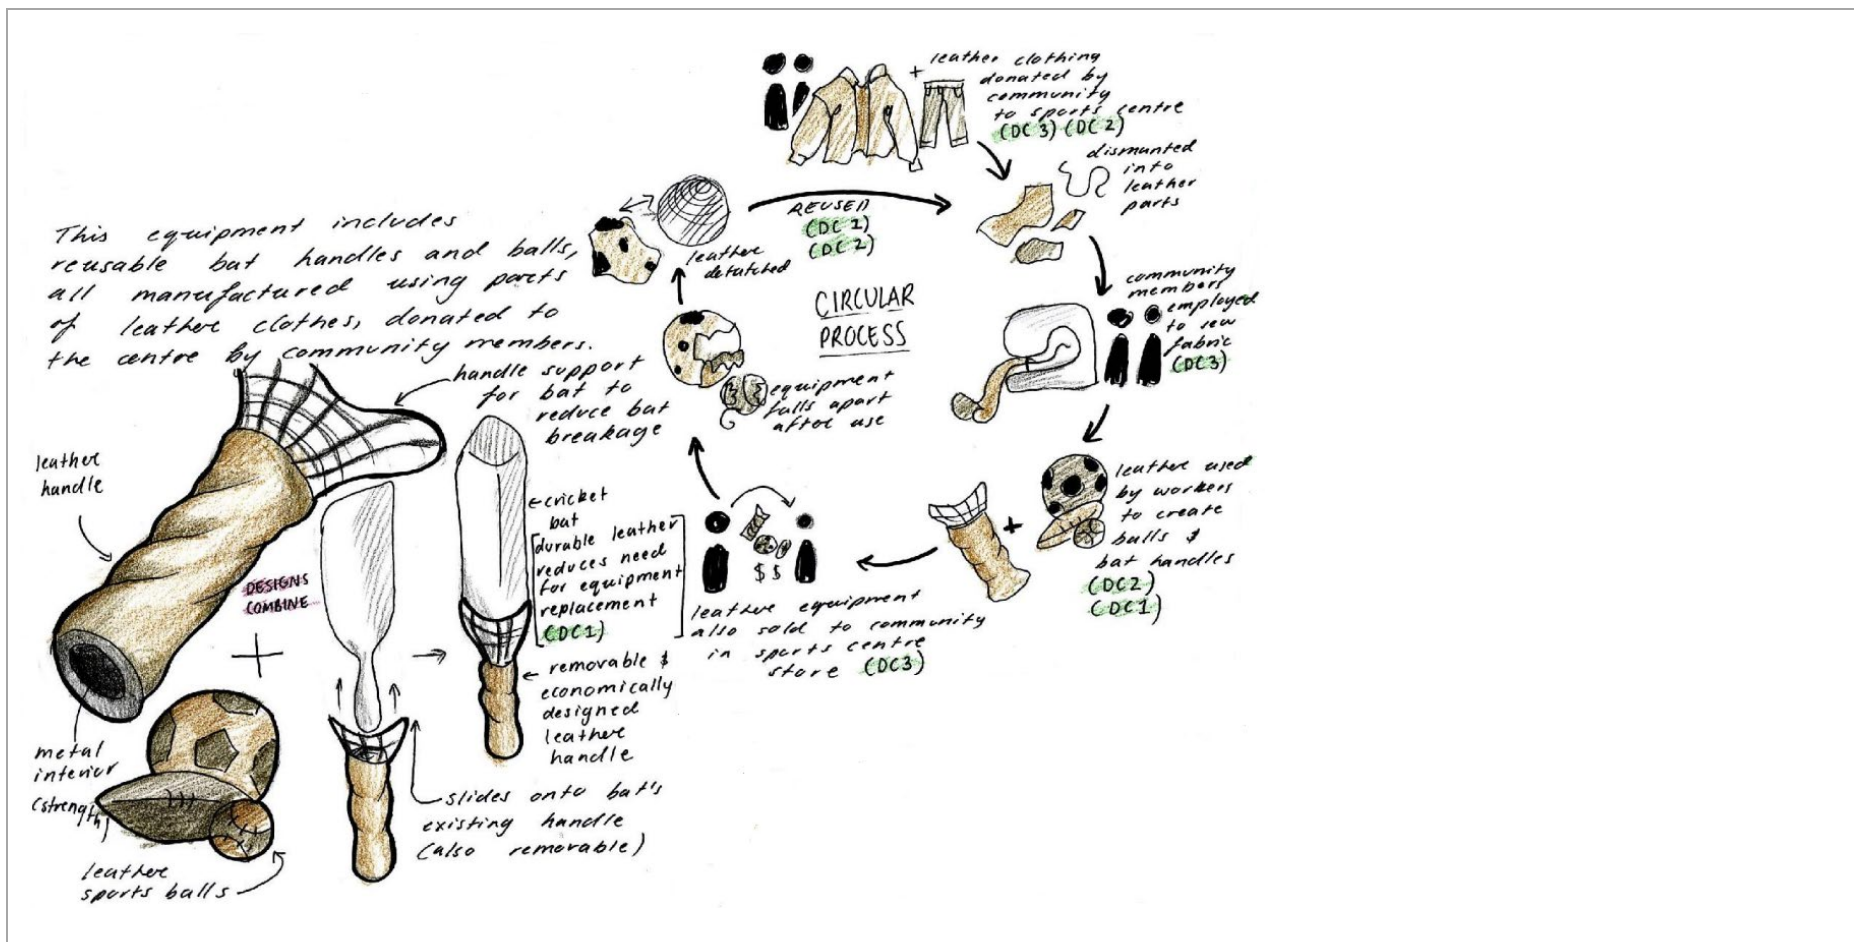 This equipment includes
reusable bat handles and balls,
all manufactured using parts
of leather clothes, donated to
the centre by community members.
handle support
for bat to
reduce bat
breakage
leather
handle
DESIGNS
COMBINE
+
metal
interior
(strength)
leather
sports balls
slides onto bat's
existing handle
(also removable)
cricket
bat
durable leather
reduces need
for equipment
replacement
(DC1)
removable &
economically
designed
leather
handle
CIRCULAR
PROCESS
+
leather clothing
donated by
community
to sports centre
(DC3) (DC2)
dismunted
into
leather
parts
community
members
employed
to sew
fabric
(DC3)
+
leather used
by workers
to create
balls &
bat handles
(DC2)
(DC1)
$$
leather equipment
also sold to community
in sports centre
store (DC3)
equipment
falls apart
after use
leather
detatched
REUSED
(DC1)
(DC2)